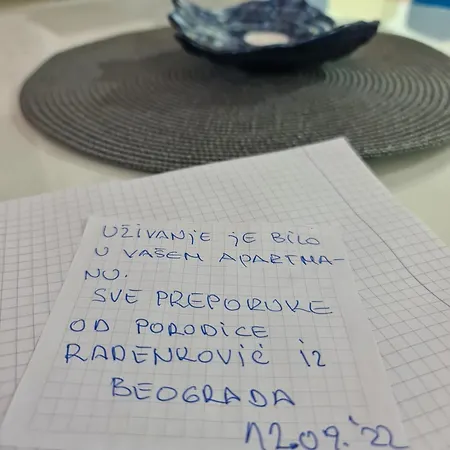 UŽIVANJE JE BILO
U VAŠEM APARTMA-
NU.
SVE PREPORUKE
OD PORODICE
RADENKOVIĆ IZ
BEOGRADA
12.09.'22